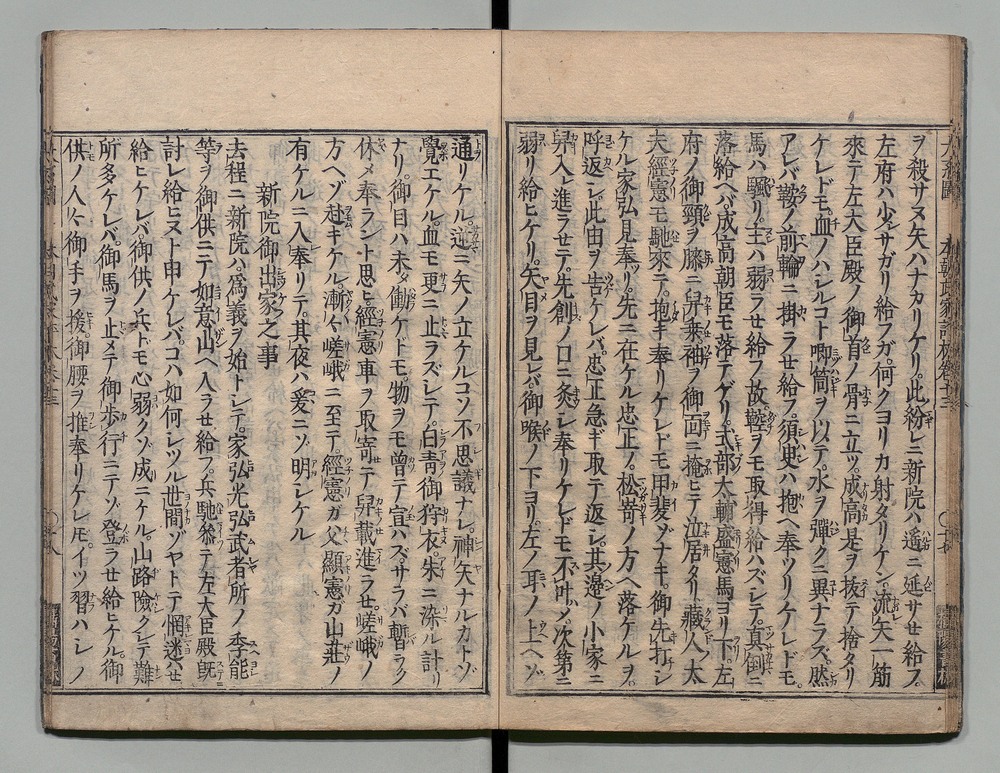 ヲ殺サヌ矢ハナカリケリ。此紛レニ新院ハ遥ニ延サセ給フ。
左府ハ少サガリ給フガ。何クヨリカ射タリケン。流矢一筋
來テ左大臣殿ノ御首ノ骨ニ立ツ。成高是ヲ抜テ捨タリ
ケレドモ。血ノハシルコト喞筒ヲ以テ。水ヲ彈クニ異ナラズ。然
アレバ鞍ノ前輪ニ掛ラセ給ヘル。須臾ハ抱ヘ奉ツリケレドモ。
馬ハ颿リ。主ハ弱ラセ給フ故。轡ヲモ取得給ハズシテ。真倒ニ
落給ヘバ。成高朝臣モ落テゲリ。式部大輔盛憲馬ヨリ下。左
府ノ御頸ヲ膝ニ舁乗。袖ヲ御面ニ掩ヒテ泣居タリ。藏人太
夫經憲モ馳來テ。抱キ奉リケレドモ甲斐ゾナキ。御先打シ
ケル家弘見奉ツリ。先ニ在ケル忠正ノ。松嵜ノ方ヘ落ケルヲ。
呼返シ。此由ヲ告ケレバ。忠正急ギ取テ返シ。其邊ノ小家ニ
舁入レ進ラセテ。先創ノ口ニ灸シ奉リケレドモ不叶。〆次第ニ
弱リ給ヒケリ。矢目ヲ見レバ。御喉ノ下ヨリ。左ノ耳ノ上ヘゾ
通リケル。逆ニ矢ノ立ケルコソ不思議ナレ。神矢ナルカトゾ
覺エケル。血モ更ニ止ラズシテ。白青御狩衣。朱ニ染ル計リ
ナリ。御目ハ未ダ働ケドモ物ヲモ曾テ宣ハズ。サラバ暫ラク
休メ奉ラント思ヒ。經憲車ヲ取寄テ舁載進ラセ。嵯峨ノ
方ヘゾ赴キケル。漸々嵯峨ニ至テ經憲ガ父顯憲ガ山莊ノ
有ケルニ入奉リテ。其夜ハ爰ニゾ明シケル
新院御出家之事
去程ニ新院ハ。爲義ヲ始トシテ。家弘光弘武者所ノ季能
等ヲ御供ニテ如意山ヘ入ラセ給フ。兵馳給テ左大臣殿既
討レ給ヒヌト申ケレバ。コハ如何シツル世間ゾヤトテ惘迷ハせ
給ヒケレバ御供ノ兵トモ心弱クゾ成ニケル。山路險クシテ難
所多ケレバ。御馬ヲ止メテ御歩行ニテゾ登ラせ給ヒケル。御
供ノ人々御手ヲ援。御腰ヲ推奉リケレドモ。イツ習ハシノ